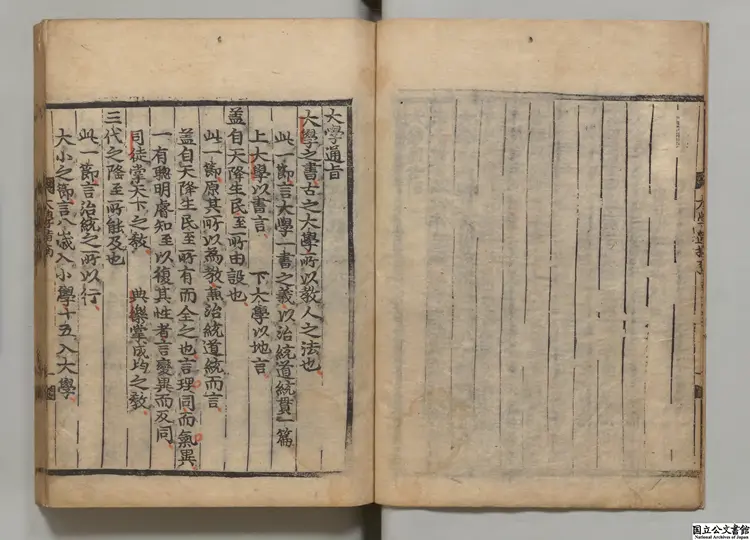 大學通旨
大學之書古之大學所以教人之法也
此一節言大學一書之義以治統道統貫一篇
上大學以書言　下大學以地言
蓋自天降生民至所由設也
此一節原其所以為教兼治統道統而言
蓋自天降生民至所有而全之也言理同而氣異
一有聰明睿知至以復其性者言變異而反同
司徒掌天下之教　典樂掌成均之教
三代之隆至所能及也
此一節言治統之所以行
大小之節言八歲入小學十五入大學
国立公文書館
National Archives of Japan